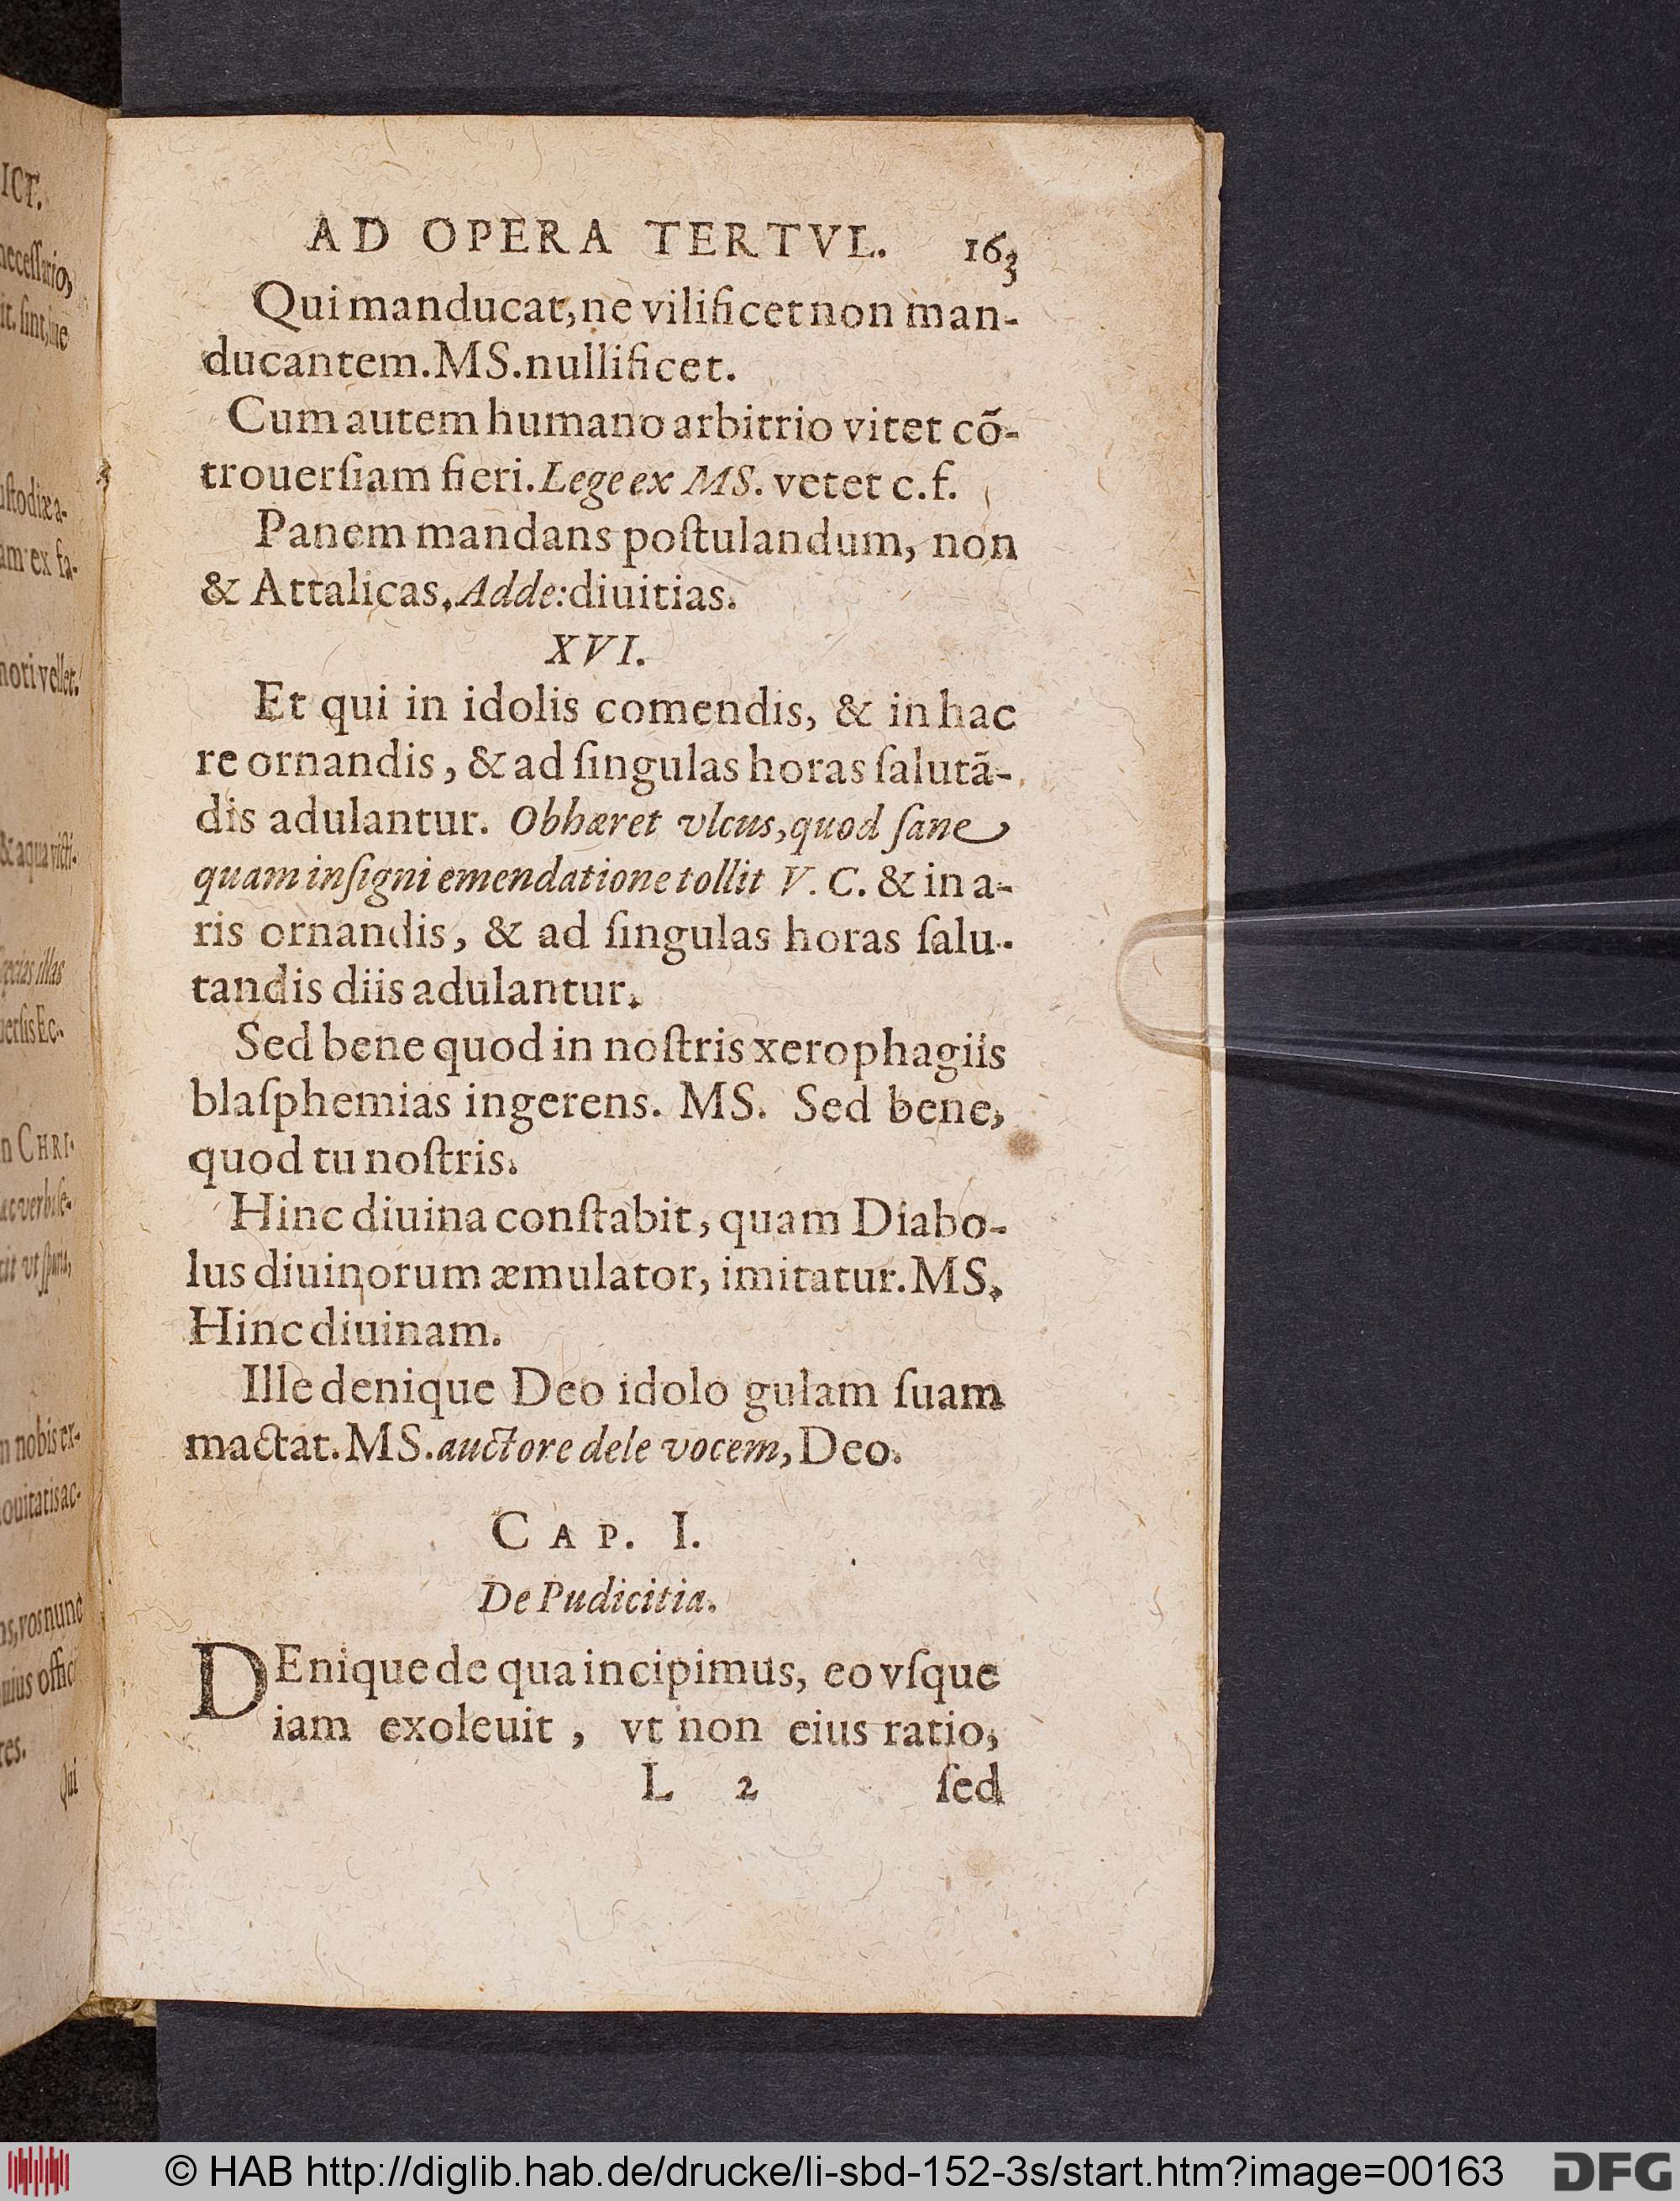 ICT.
necessario,
ustodiæ a-
am ex fa-
mori vellet.
& aqua victi-
species illas
uersis Ec-
n CHRI-
m nobis er-
ouitatis ac-
ns, vos nunc
res.
Qui
AD OPERA TERTVL. 163
Qui manducat, ne vilificet non man-
ducantem. MS. nullificet.
Cum autem humano arbitrio vitet cō-
trouerſiam fieri. Lege ex MS. vetet c. f.
Panem mandans poſtulandum, non
& Attalicas. Adde: diuitias.
XVI.
Et qui in idolis comendis, & in hac
re ornandis, & ad ſingulas horas ſalutā-
dis adulantur. Obhæret vlcus, quod ſane
quam inſigni emendatione tollit V. C. & in a-
ris ornandis, & ad ſingulas horas ſalu-
tandis diis adulantur.
Sed bene quod in noſtris xerophagiis
blaſphemias ingerens. MS. Sed bene,
quod tu noſtris.
Hinc diuina conſtabit, quam Diabo-
lus diuinorum æmulator, imitatur. MS.
Hinc diuinam.
Ille denique Deo idolo gulam ſuam
mactat. MS. auctore dele vocem, Deo.
CAP. I.
De Pudicitia.
DEnique de qua incipimus, eo vſque
iam exoleuit, vt non eius ratio,
L 2 ſed
© HAB http://diglib.hab.de/drucke/li-sbd-152-3s/start.htm?image=00163
DFG